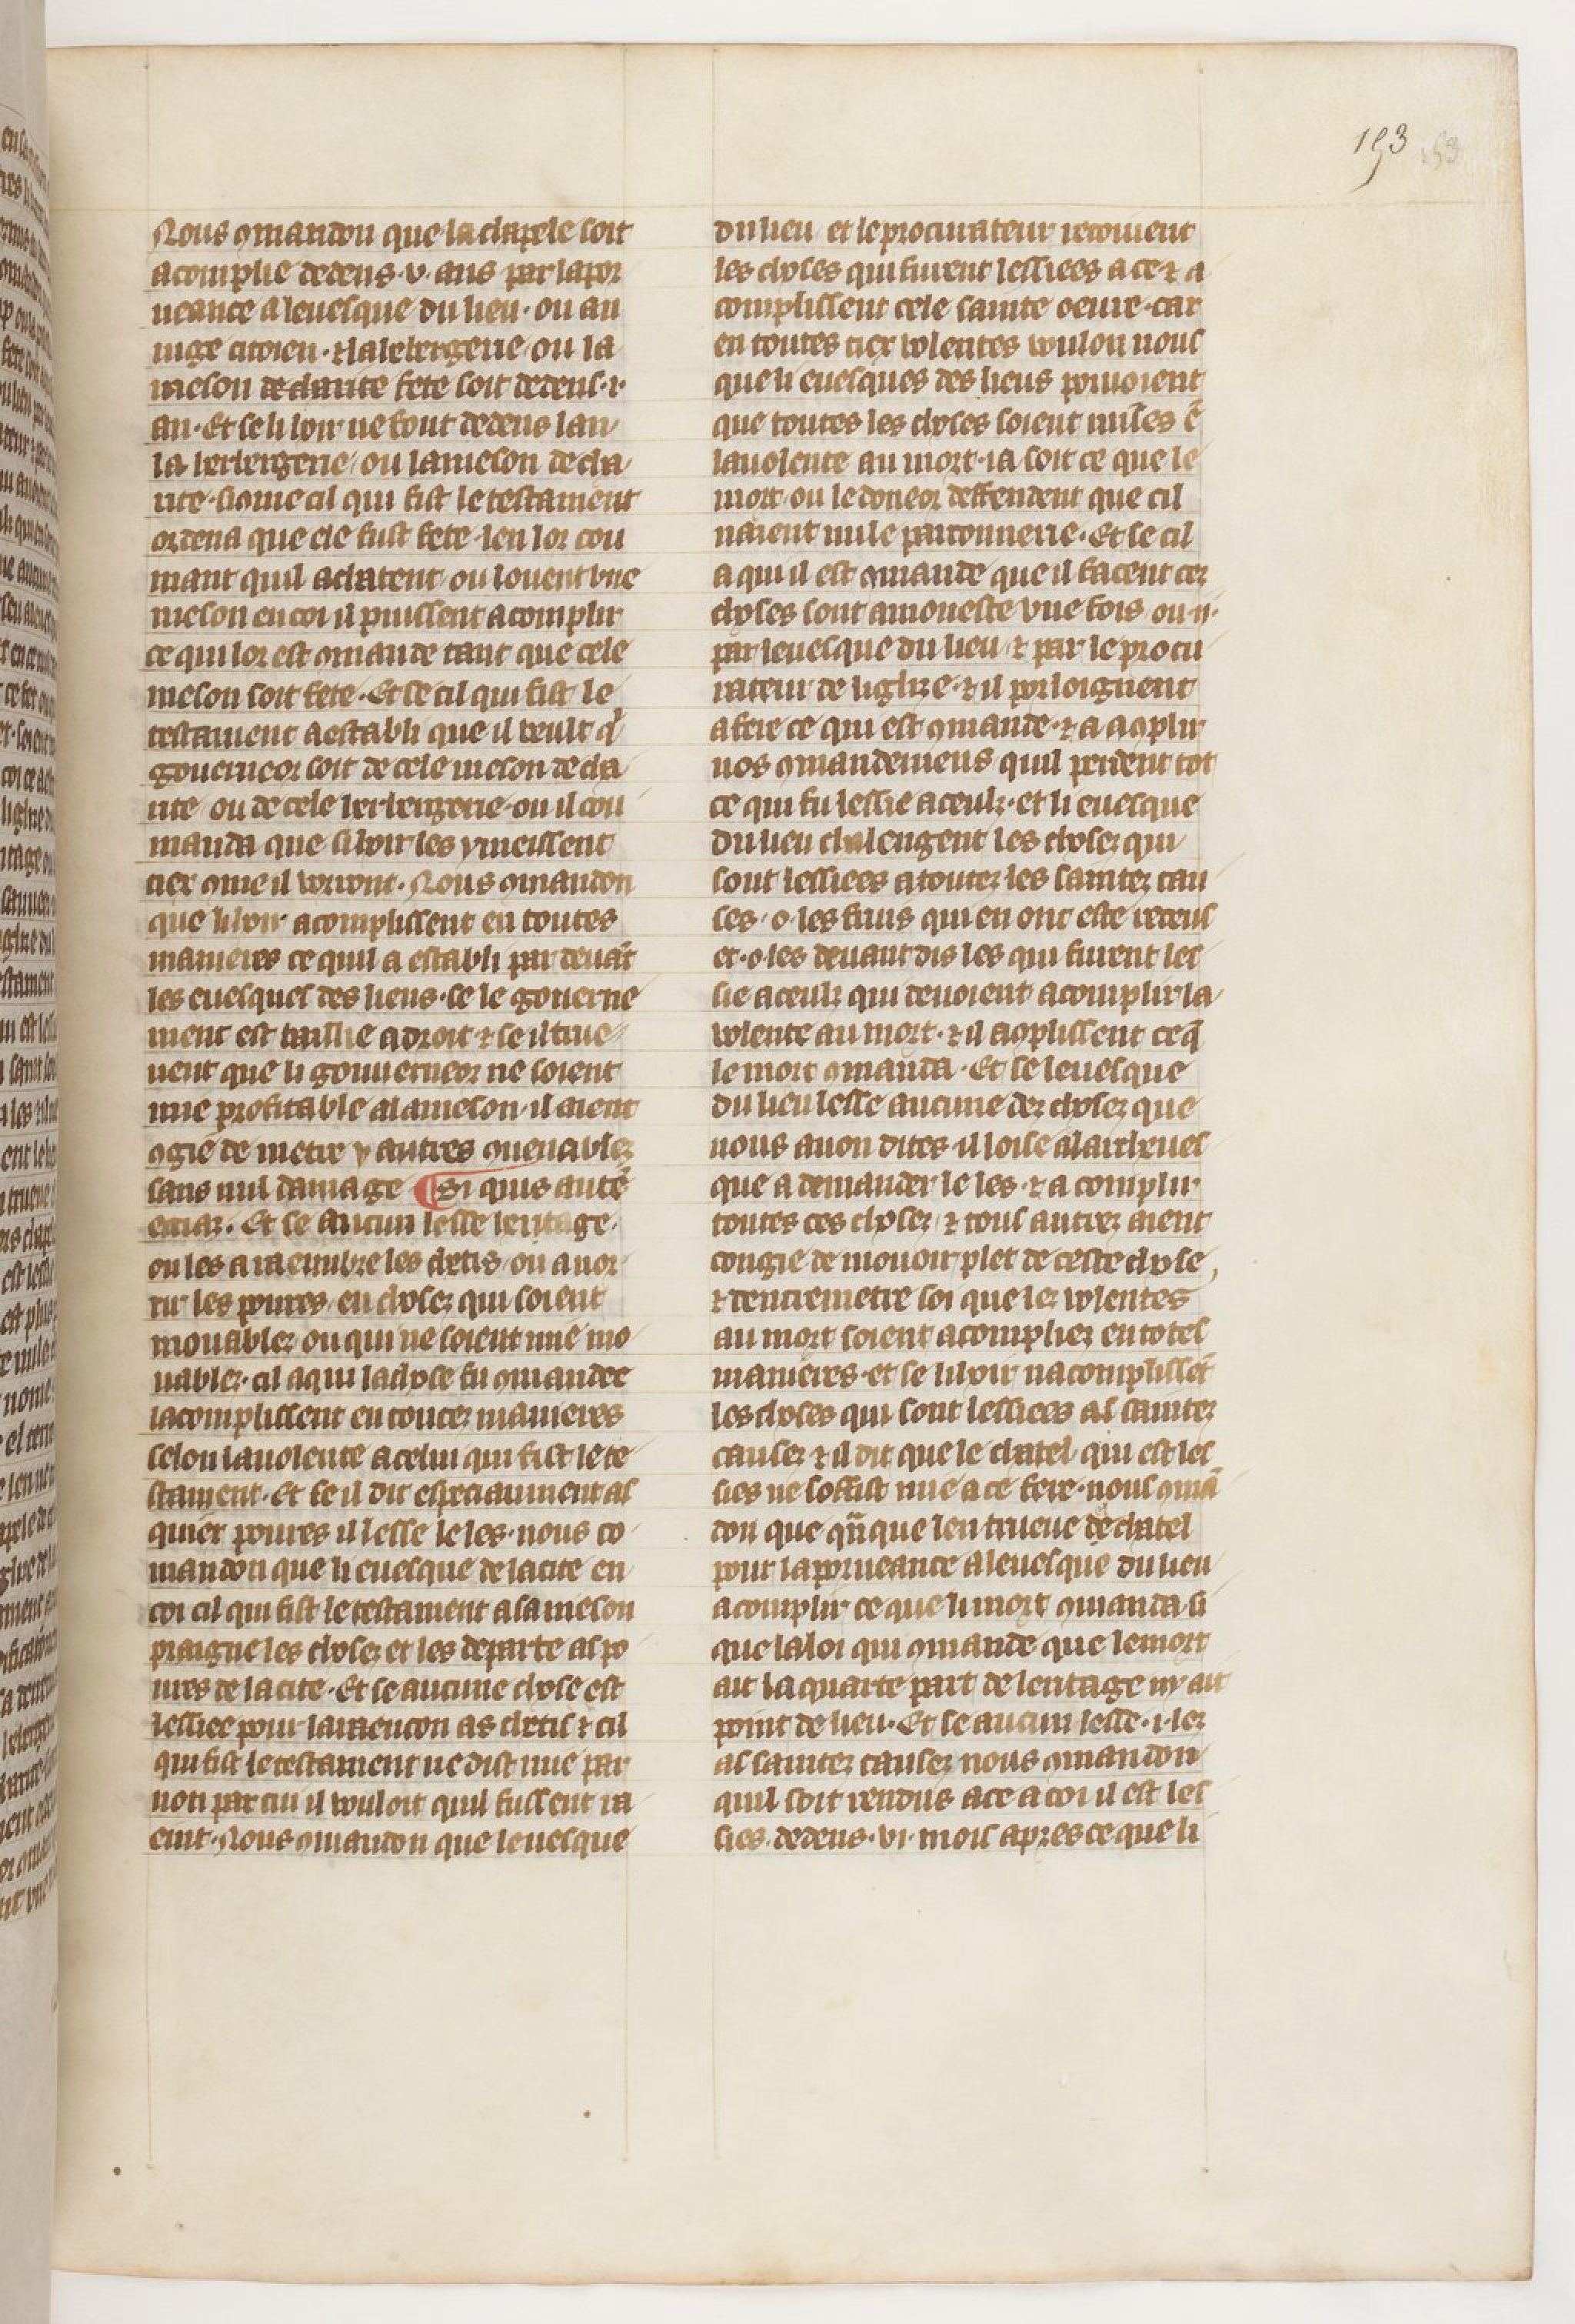 153 153
Nous ꝯmandon que la chapele soit
acomplie dedens .v. ans par la por
ueance a leuesque du lieu. ou au
iuge citoien. ⁊ la lebergerie ou la
meson de charite fete soit dedens .i.
an. Et se li hoir ne font dedens lan
la herbergerie ou la meson de cha
rite. si ome cil qui fist le testament
ordena que ele fust fete. len lor cou
mant quil achatent ou louent vne
meson en coi il puissent acomplir
ce qui lor est ꝯmande tant que cele
meson soit fete. Et se cil qui fist le
testament a establi que il veult q̄
gouerneor soit de cele meson de cha
rite ou de cele herbergerie. ou il cou
manda que si hoir les y meissent
tiex ꝯme il vorront. Nous ꝯmandon
que li hoir acomplissent en toutes
manieres ce quil a establi par deuāt
les euesques des liens. se le gouerne
ment est baillie a droit ⁊ se il true
uent que li gouuerneor ne soient
mie profitable a la meson. il aient
ꝯgie de metre y autres ꝯuenablez
sans nul damage ¶ Si quis autē
eciaz. Et se aucun lesse leritage.
ou les a raembre les chetis. ou a nor
rir les poures. en chosez qui soient
mouablez ou qui ne soient mie mo
uablez. cil a qui la chose fu ꝯmandee
lacomplissent en toutez manieres
selon la uolente a celui qui fist le te
stament. Et se il dit especiaument as
quiex poures il lesse le les. nous co
mandon que li euesque de la cite en
coi cil qui fist le testament a la meson
praigne les chosez et les departe as po
ures de la cite. Et se aucune chose est
lessiee pour la raencon as chetis ⁊ cil
qui fist le testament ne dist mie par
non par cui il vouloit quil fussent ra
eint. Nous ꝯmandon que leuesque
du lieu et le procurateur recoiuent
les choses qui furent lessiees a ce ⁊ a
complissent cele sainte oeure. car
en toutes tiex volentes voulon nous
que li euesques des lieus pouruoient
que toutes les choses soient mises ē
la uolente au mort. ia soit ce que le
mort ou le doneor deffendent que cil
naient nule parconnerie. Et se cil
a qui il est ꝯmande que il facent cez
choses sont amoneste vne fois ou .ii.
par leuesque du lieu ⁊ par le procu
rateur de liglize. ⁊ il porloignent
a fere ce qui est ꝯmande. ⁊ a aꝯplir
nos ꝯmandemens quil perdent tot
ce qui fu lessie a ceulz. et li euesque
du lieu chalengent les chosez qui
sont lessiees a toutez les saintez cau
ses. o les fruis qui en ont este receus
et. o les deuant dis les qui furent les
sie a ceulz qui deuoient acomplir la
volente au mort. ⁊ il aꝯplissent ce q̄
le mort ꝯmanda. Et se leuesque
du lieu lesse aucune dez chosez que
nous auon dites. il loise a larceues
que a demander le les. ⁊ a complir
toutes ces chosez. ⁊ tous autrez aient
congie de mouoir plet de ceste chose,
⁊ dentremetre soi que lez volentes
au mort soient acompliez en totes
manieres. et se li hoir nacomplissēt
les choses qui sont lessiees as saintez
causez ⁊ il dit que le chatel qui est les
sies ne soffist mie a ce fere. nous ꝯmā
don que qn̄que len trueue de chatel
pour la porueance a leuesque du lieu
acomplir ce que li mort ꝯmanda. si
que la loi qui ꝯmande que le mort
ait la quarte part de leritage ny ait
point de lieu. Et se aucun lesse .i. lez
as saintez causez nous ꝯmandon
quil soit rendus a ce a coi il est les
sies. dedens .vi. mois apres ce que li